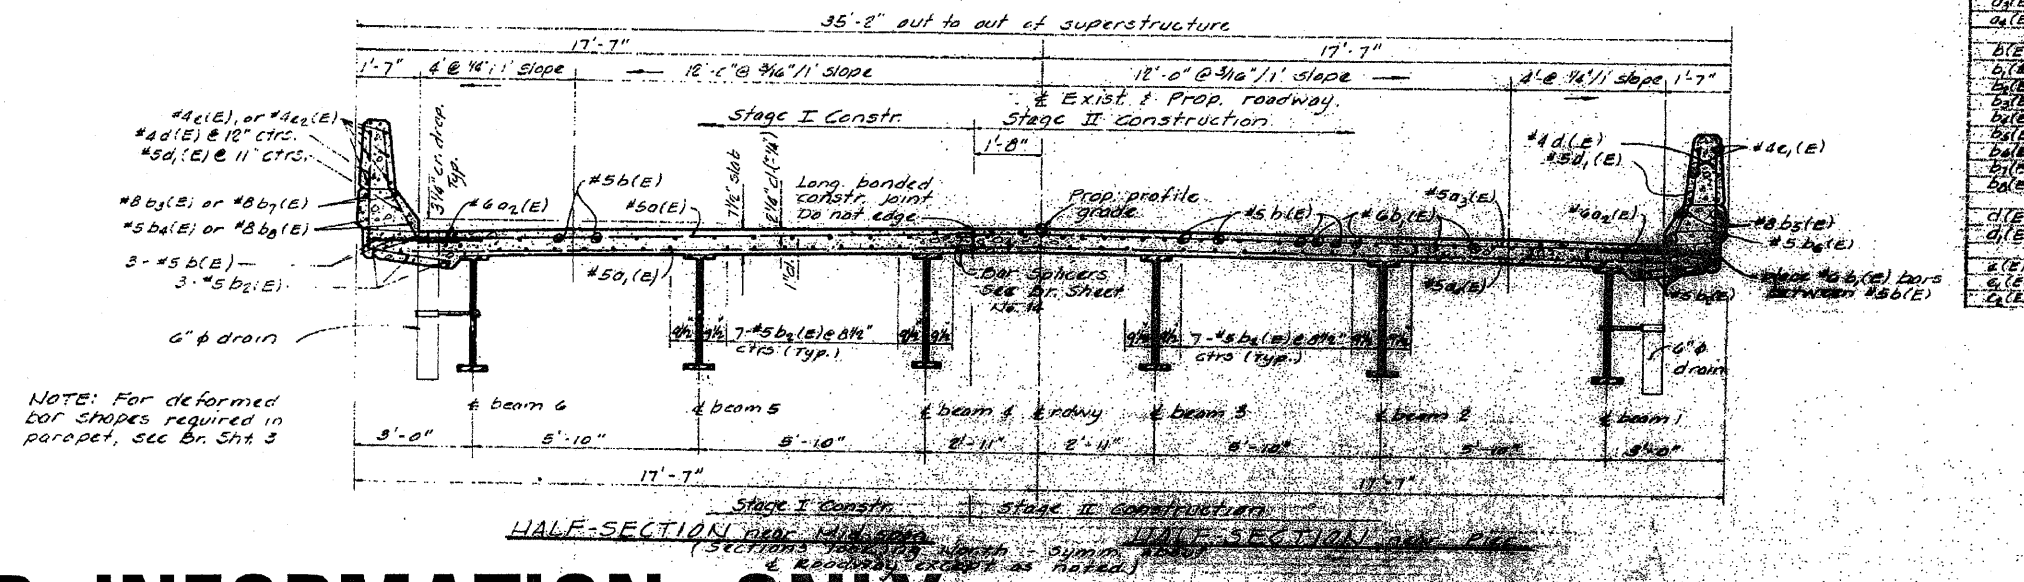 35'-2" out to out of superstructure
17'-7"
17'-7"
1'-7"
4' @ 1/4"/1' slope
12'-0" @ 3/16"/1' slope
12'-0" @ 3/16"/1' slope
4' @ 1/4"/1' slope
1'-7"
℄ Exist & Prop. roadway.
Stage I Constr.
Stage II Construction
1'-8"
#4e(E), or #4e2(E)
#4d(E) @ 12" ctrs.
#5d1(E) @ 11" ctrs.
#8b3(E) or #8b7(E)
#5b4(E) or #8b8(E)
3-#5b(E)
3-#5b2(E)
6" ϕ drain
3 1/4" cr. drop.
Typ.
#6a2(E)
#5b(E)
#5a(E)
7 1/2" slab
2 1/4" cl (±1/4")
1" cl.
#5a1(E)
Long. bonded
constr. joint
Do not edge
Prop. profile
grade
#5b(E)
#6b1(E)
#5a3(E)
#6a2(E)
#4d(E)
#5d1(E)
#4e1(E)
#8b5(E)
#5b6(E)
place #6b1(E) bars
between #5b(E)
Bar Splicers
See Br. Sheet
9 1/2" 9 1/2"
7-#5b2(E) @ 8 1/2"
ctrs (Typ.)
9 1/2" 9 1/2"
9 1/2" 9 1/2"
7-#5b2(E) @ 8 1/2"
ctrs (Typ.)
9 1/2" 9 1/2"
6" ϕ
drain
NOTE: For deformed
bar shapes required in
parapet, see Br. Sht. 3
℄ beam 6
℄ beam 5
℄ beam 4
℄ rdwy
℄ beam 3
℄ beam 2
℄ beam 1
3'-0"
5'-10"
5'-10"
2'-11"
2'-11"
5'-10"
5'-10"
3'-0"
17'-7"
17'-7"
Stage I Constr.
Stage II Construction
HALF-SECTION near Mid span
HALF-SECTION near Pier
(Sections looking North - Symm. about
℄ Roadway except as noted.)
INFORMATION ONLY